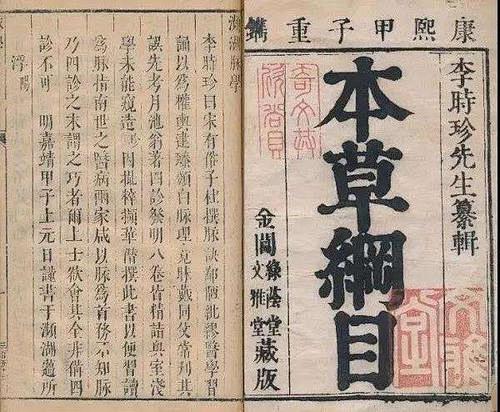 康熙甲子重鐫
李時珍先生纂輯
本草綱目
金閶
綠蔭堂
文雅堂
藏版
瀕湖脈學
李時珍曰宋有俗子撰脈訣鄙陋紕繆醫學習
誦以爲權輿逮臻頒白脈理竟昧戴同父常刋其
誤先考月池翁著四診發明八卷皆精詣奧室淺
學未能窺造珍因撮粹擷華僭撰此書以便習讀
爲脈指南世之醫病兩家咸以脈爲首務不知脈
乃四診之末謂之巧者爾上士欲會其全非備四
診不可 明嘉靖甲子上元日謹書于瀕湖薖所
浮 陽